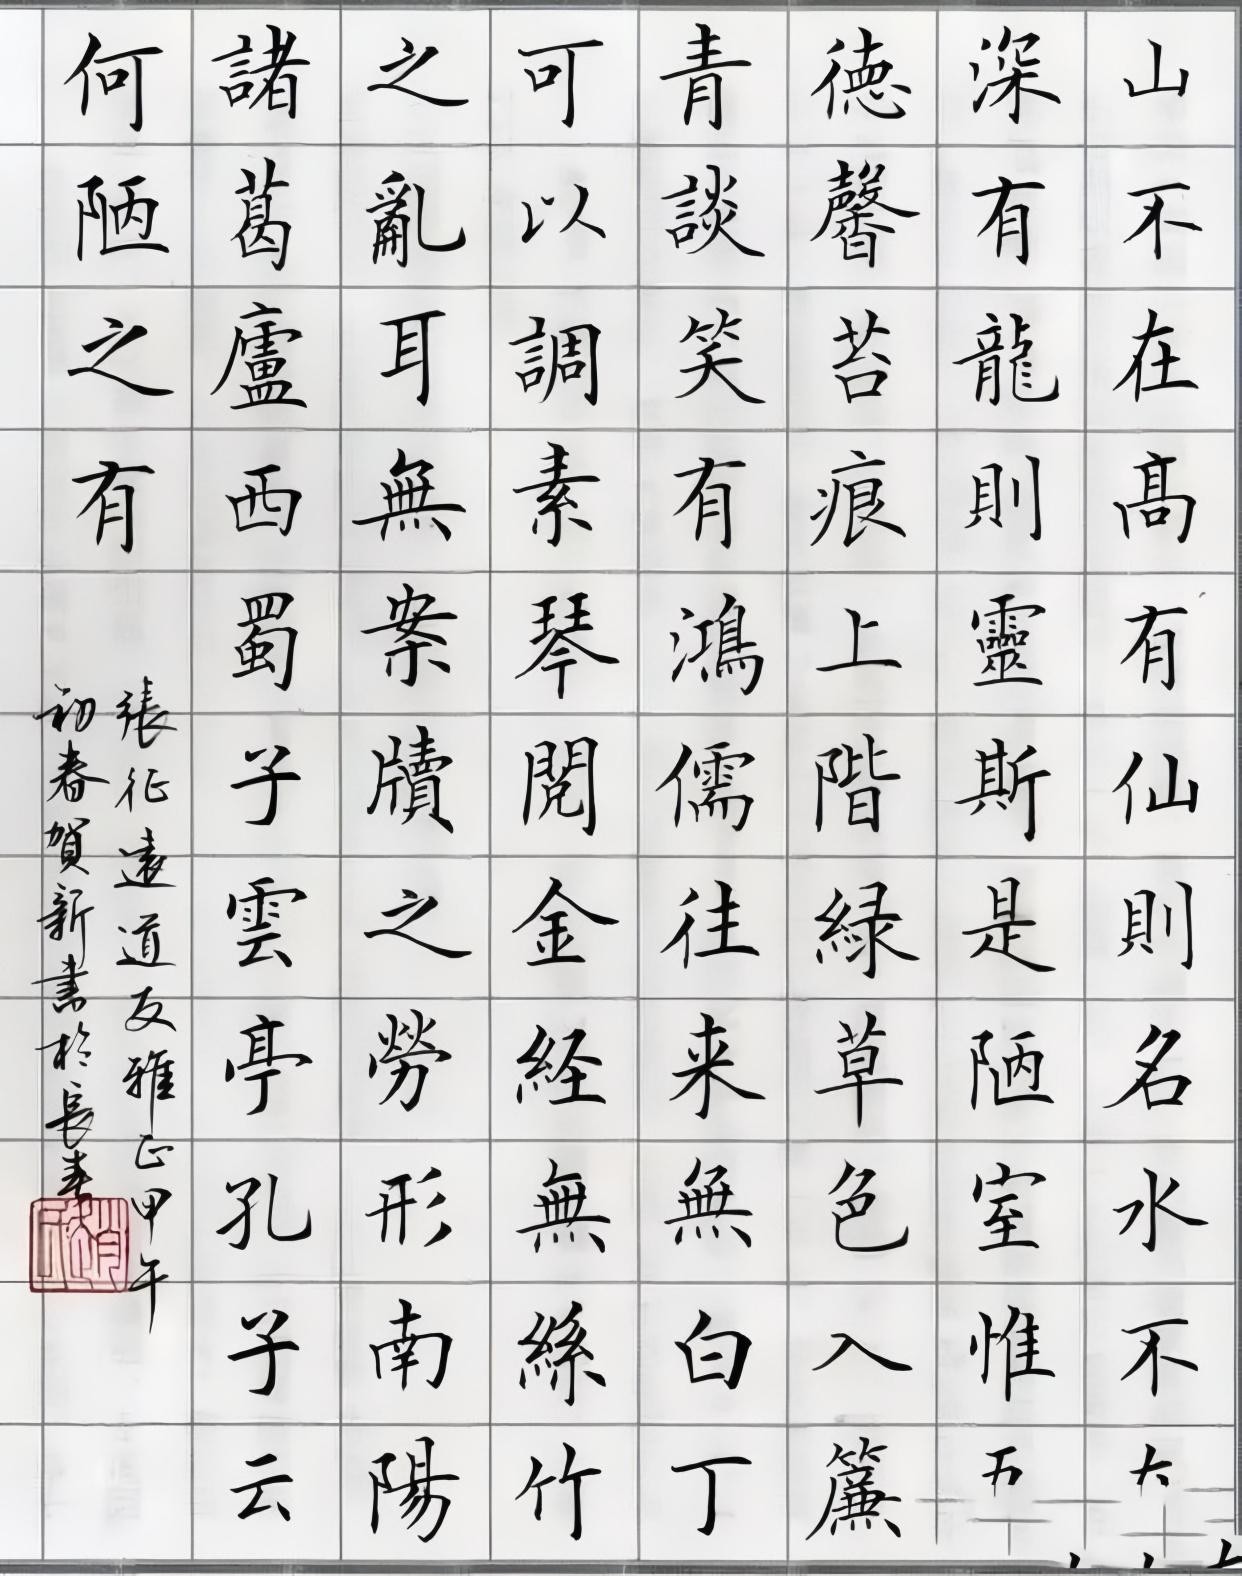 山不在髙有仙則名水不
深有龍則靈斯是陋室惟
徳馨苔痕上階緑草色入簾
青談笑有鴻儒往来無白丁
可以調素琴閲金経無絲竹
之亂耳無案牘之勞形南陽
諸葛廬西蜀子雲亭孔子云
何陋之有
張征遠道友雅正甲午
初春賀新書於長春